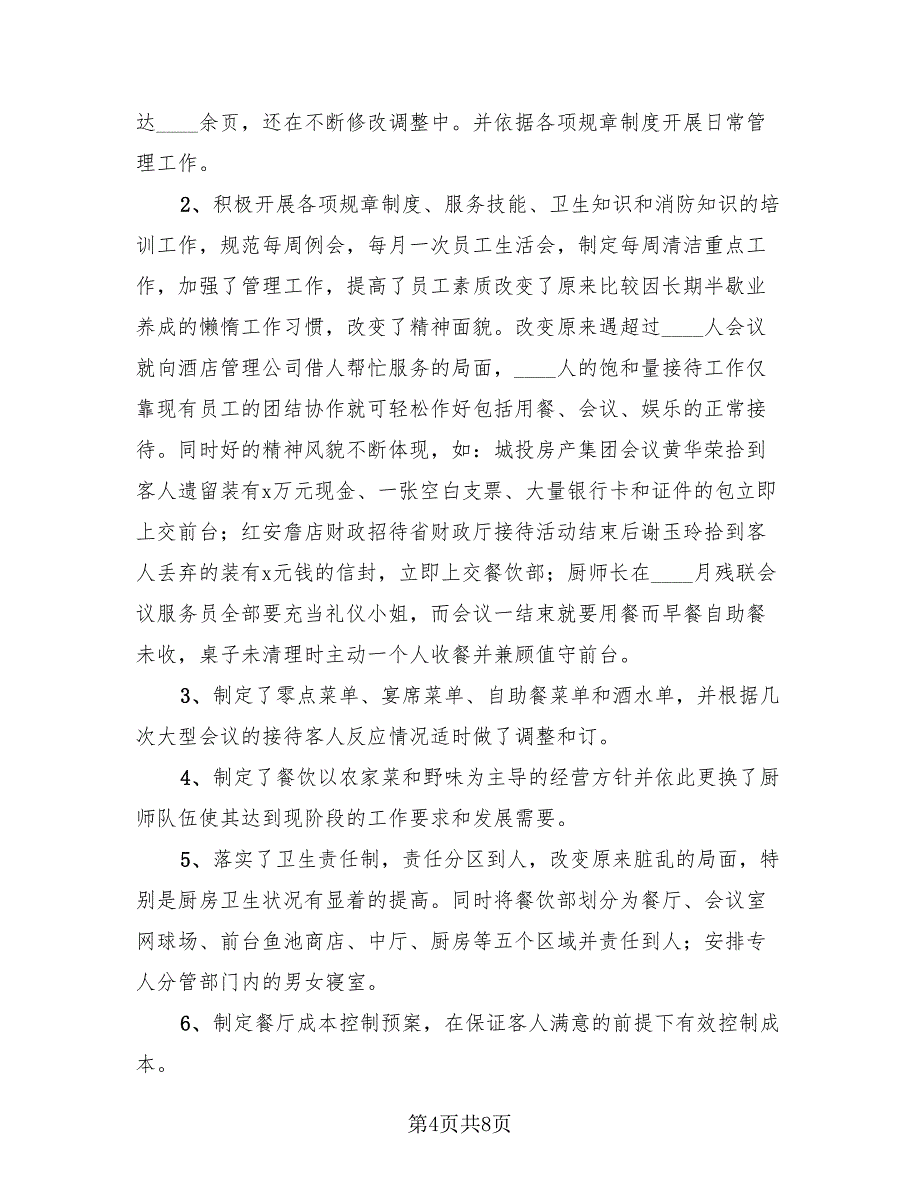 达____余页，还在不断修改调整中。并依据各项规章制度开展日常管
理工作。
2、积极开展各项规章制度、服务技能、卫生知识和消防知识的培
训工作，规范每周例会，每月一次员工生活会，制定每周清洁重点工
作，加强了管理工作，提高了员工素质改变了原来比较因长期半歇业
养成的懒惰工作习惯，改变了精神面貌。改变原来遇超过____人会议
就向酒店管理公司借人帮忙服务的局面，____人的饱和量接待工作仅
靠现有员工的团结协作就可轻松作好包括用餐、会议、娱乐的正常接
待。同时好的精神风貌不断体现，如：城投房产集团会议黄华荣拾到
客人遗留装有x万元现金、一张空白支票、大量银行卡和证件的包立即
上交前台；红安詹店财政招待省财政厅接待活动结束后谢玉玲拾到客
人丢弃的装有x元钱的信封，立即上交餐饮部；厨师长在____月残联会
议服务员全部要充当礼仪小姐，而会议一结束就要用餐而早餐自助餐
未收，桌子未清理时主动一个人收餐并兼顾值守前台。
3、制定了零点菜单、宴席菜单、自助餐菜单和酒水单，并根据几
次大型会议的接待客人反应情况适时做了调整和订。
4、制定了餐饮以农家菜和野味为主导的经营方针并依此更换了厨
师队伍使其达到现阶段的工作要求和发展需要。
5、落实了卫生责任制，责任分区到人，改变原来脏乱的局面，特
别是厨房卫生状况有显着的提高。同时将餐饮部划分为餐厅、会议室
网球场、前台鱼池商店、中厅、厨房等五个区域并责任到人；安排专
人分管部门内的男女寝室。
6、制定餐厅成本控制预案，在保证客人满意的前提下有效控制成
本。
第4页共8页